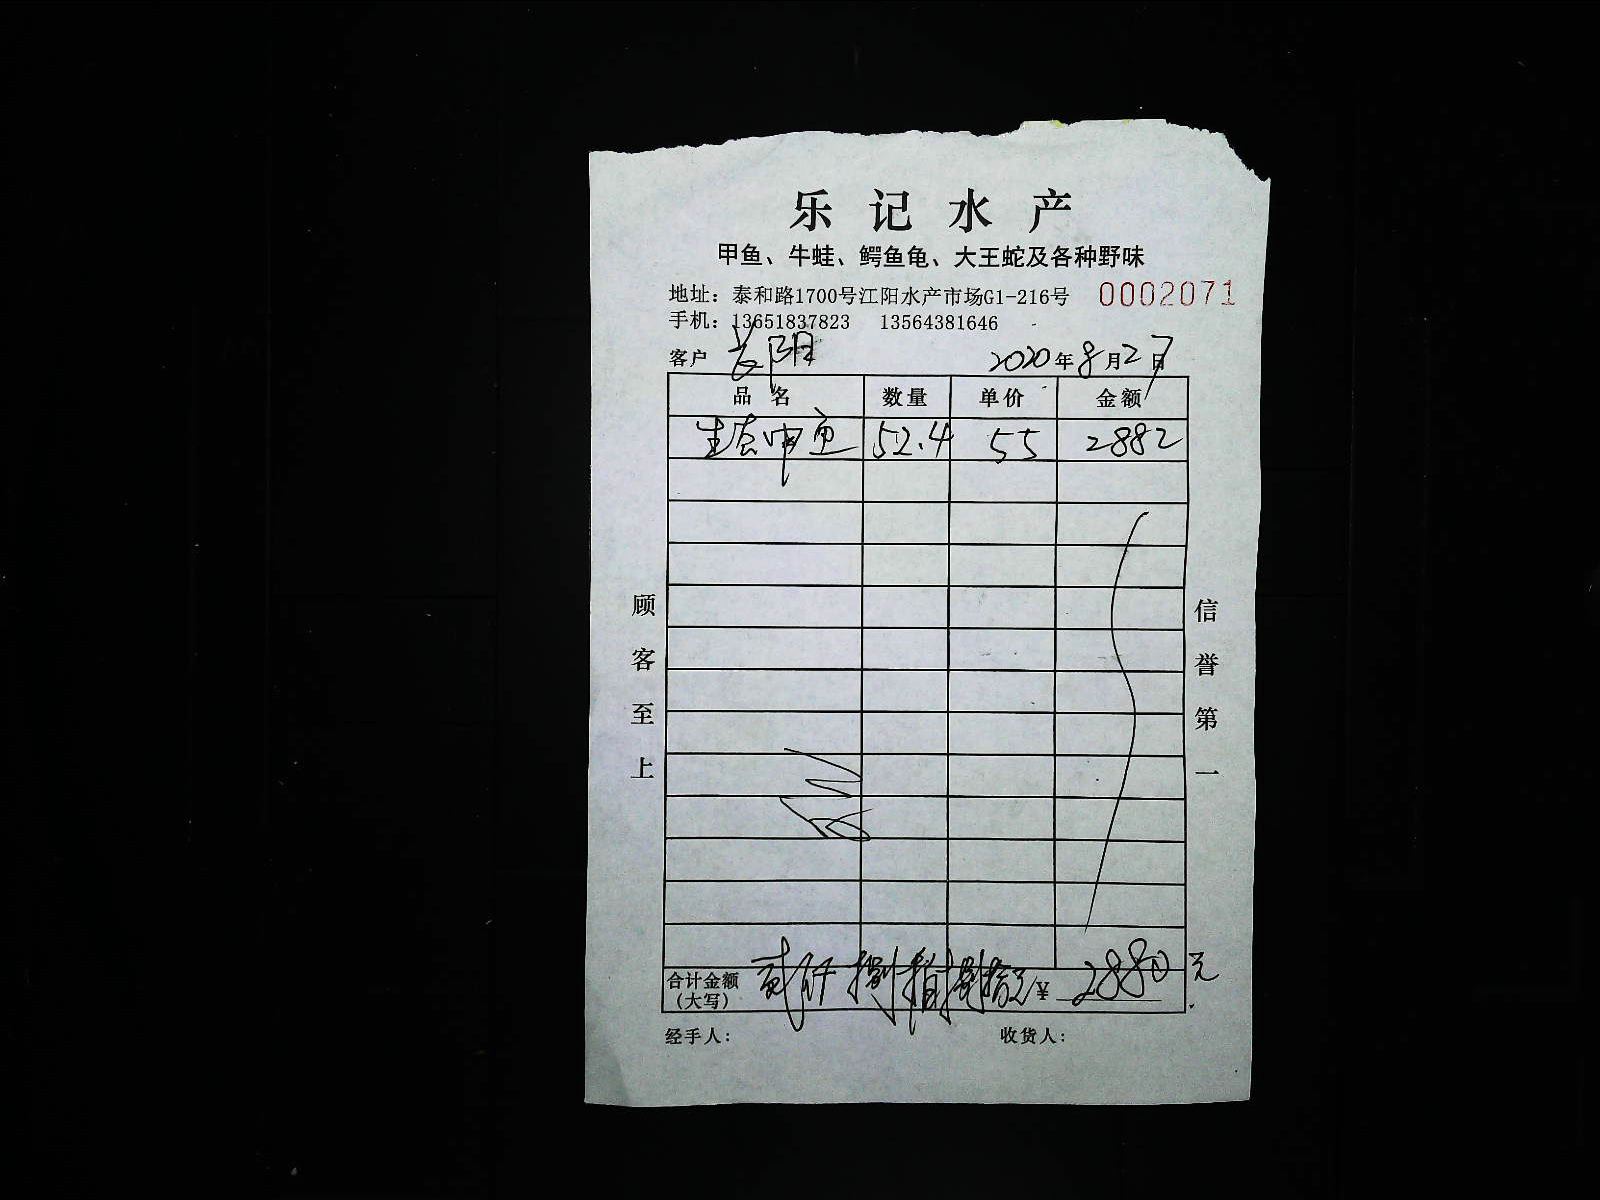 乐记水产
甲鱼、牛蛙、鳄鱼龟、大王蛇及各种野味
地址：泰和路1700号江阳水产市场G1-216号 0002071
手机：13651837823 13564381646
客户 长阳 2020年8月27日
品名 数量 单价 金额
生态甲鱼 52.4 55 2882
顾客至上
信誉第一
合计金额（大写） 贰仟捌佰捌拾元 ¥ 2880元
经手人： 收货人：